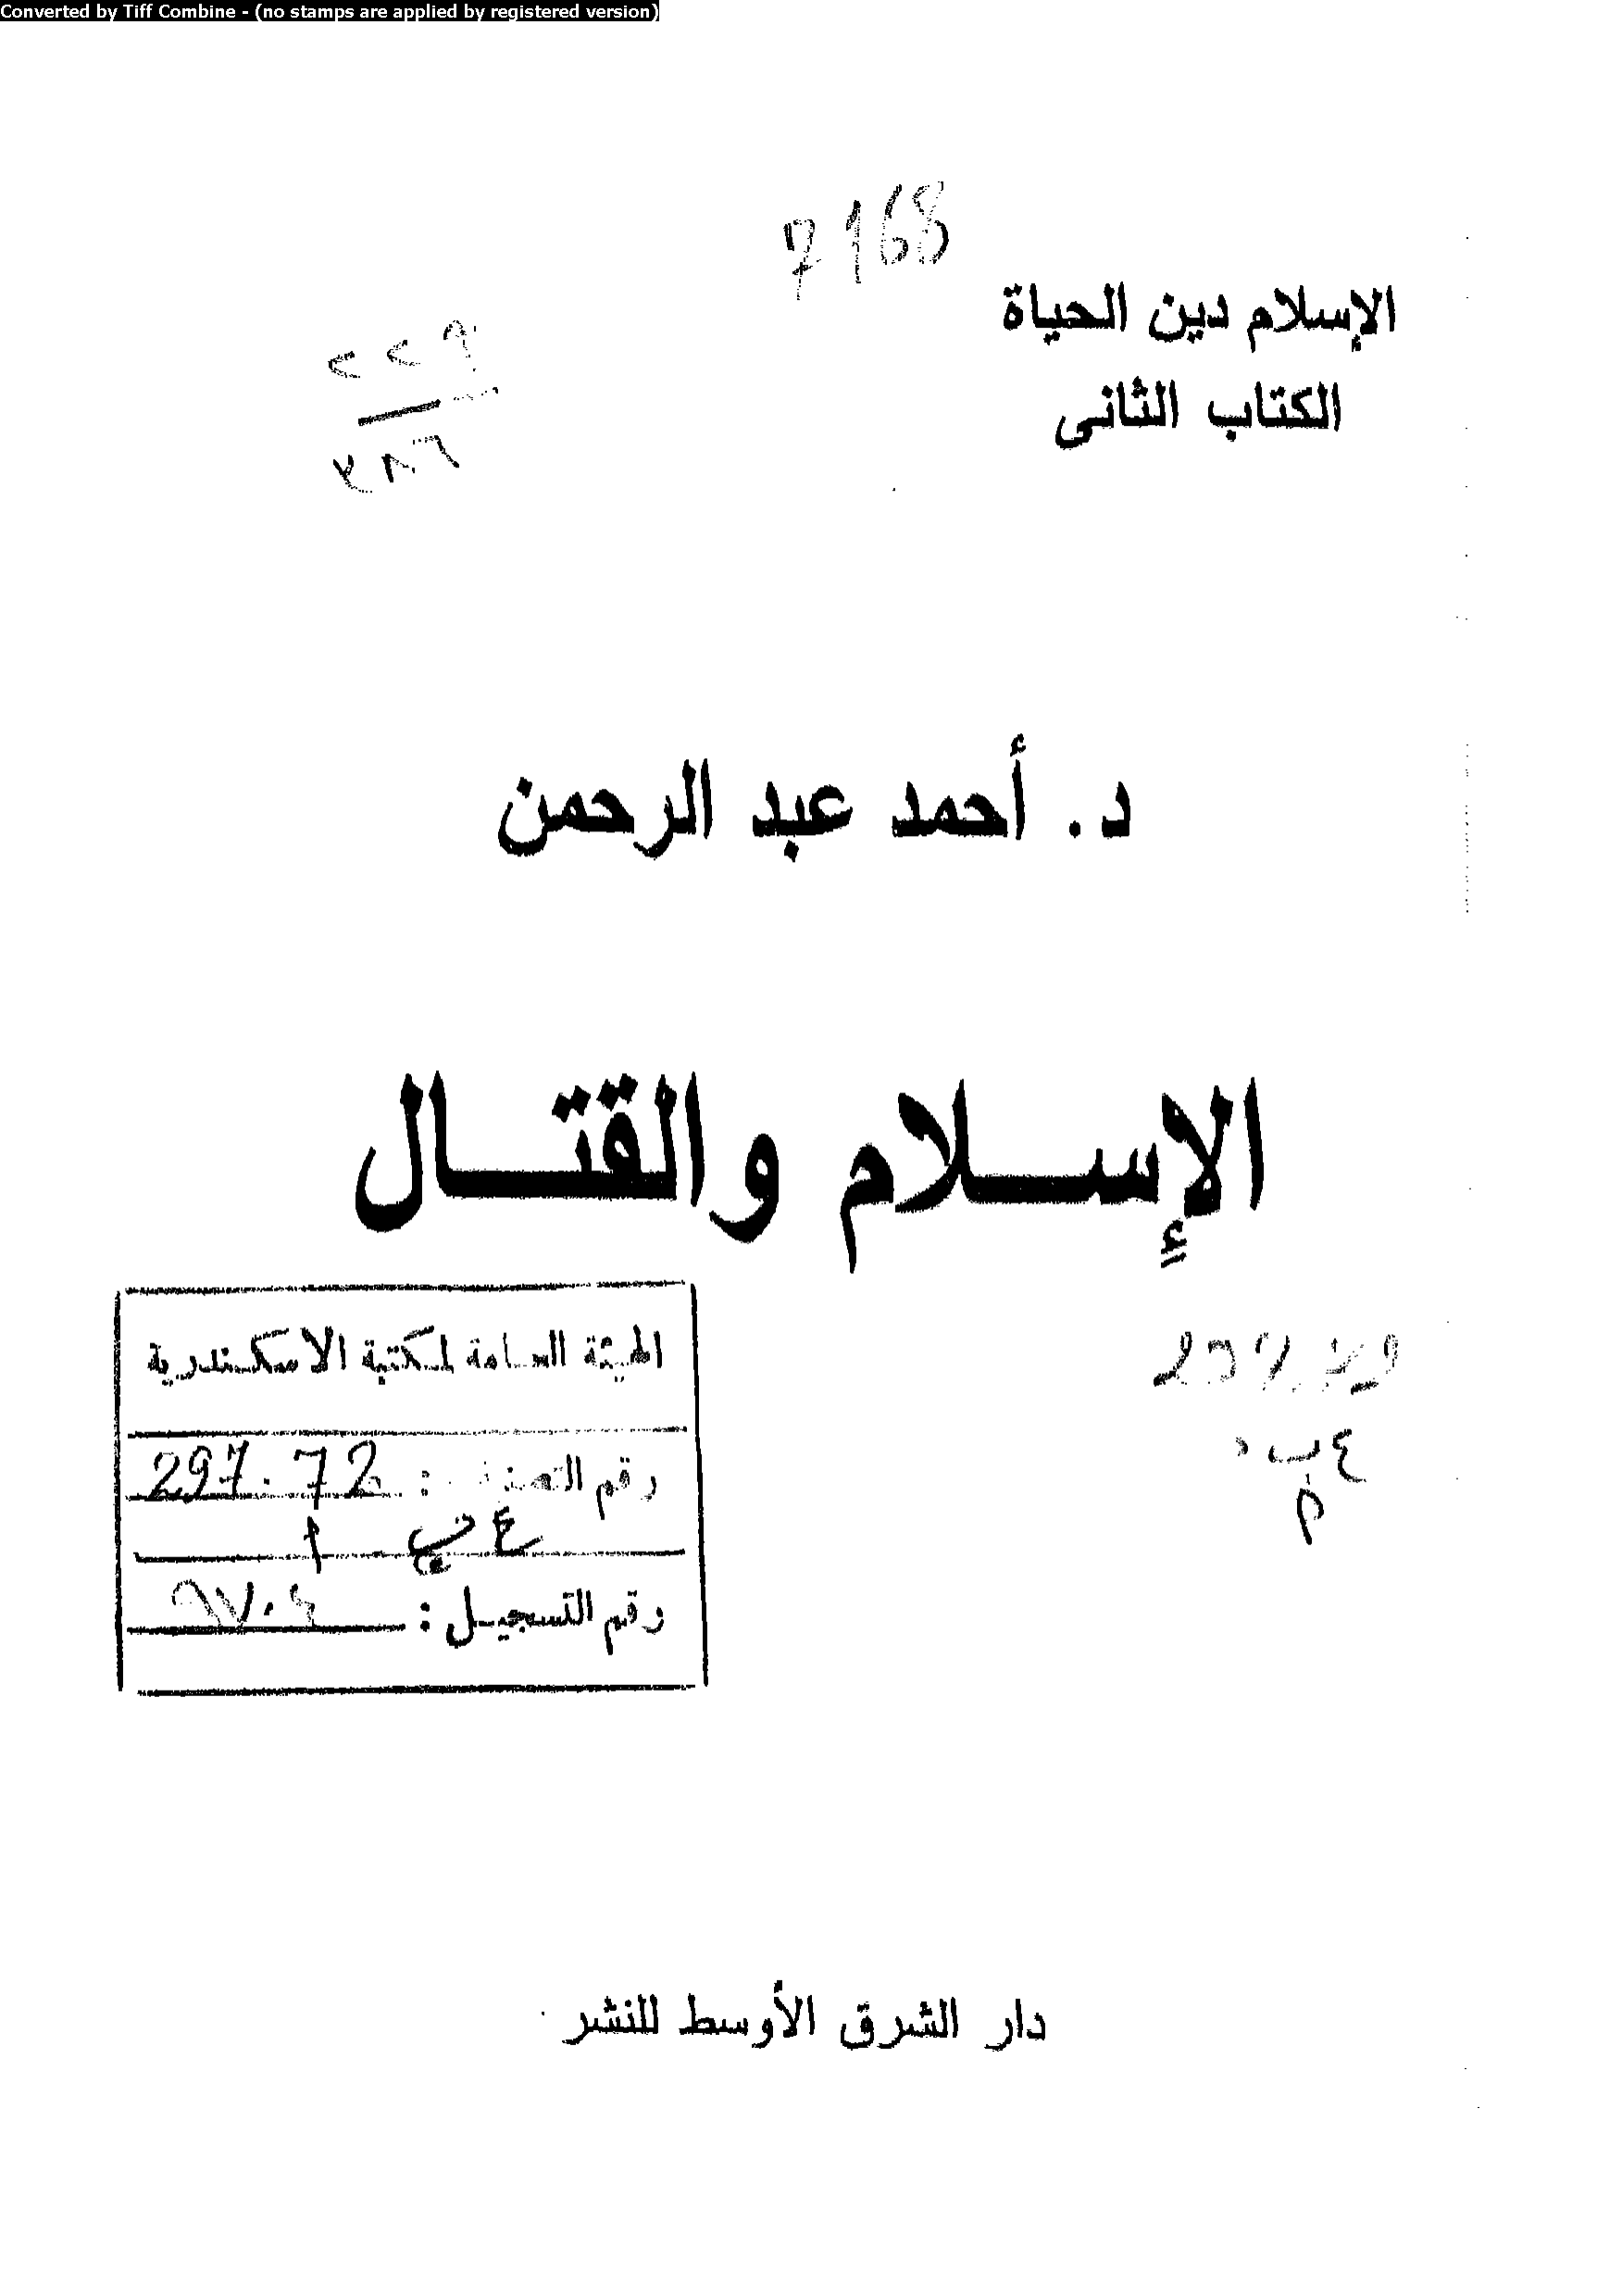 Converted by Tiff Combine - (no stamps are applied by registered version)
7168
الإسلام دين الحياة
الكتاب الثانى
د. أحمد عبد الرحمن
الإسلام والقتال
الهيئة العامة لمكتبة الاسكندرية
رقم التصنيف : 297.72
ع ب ا
رقم التسجيل : ٩٧٠٤
دار الشرق الأوسط للنشر